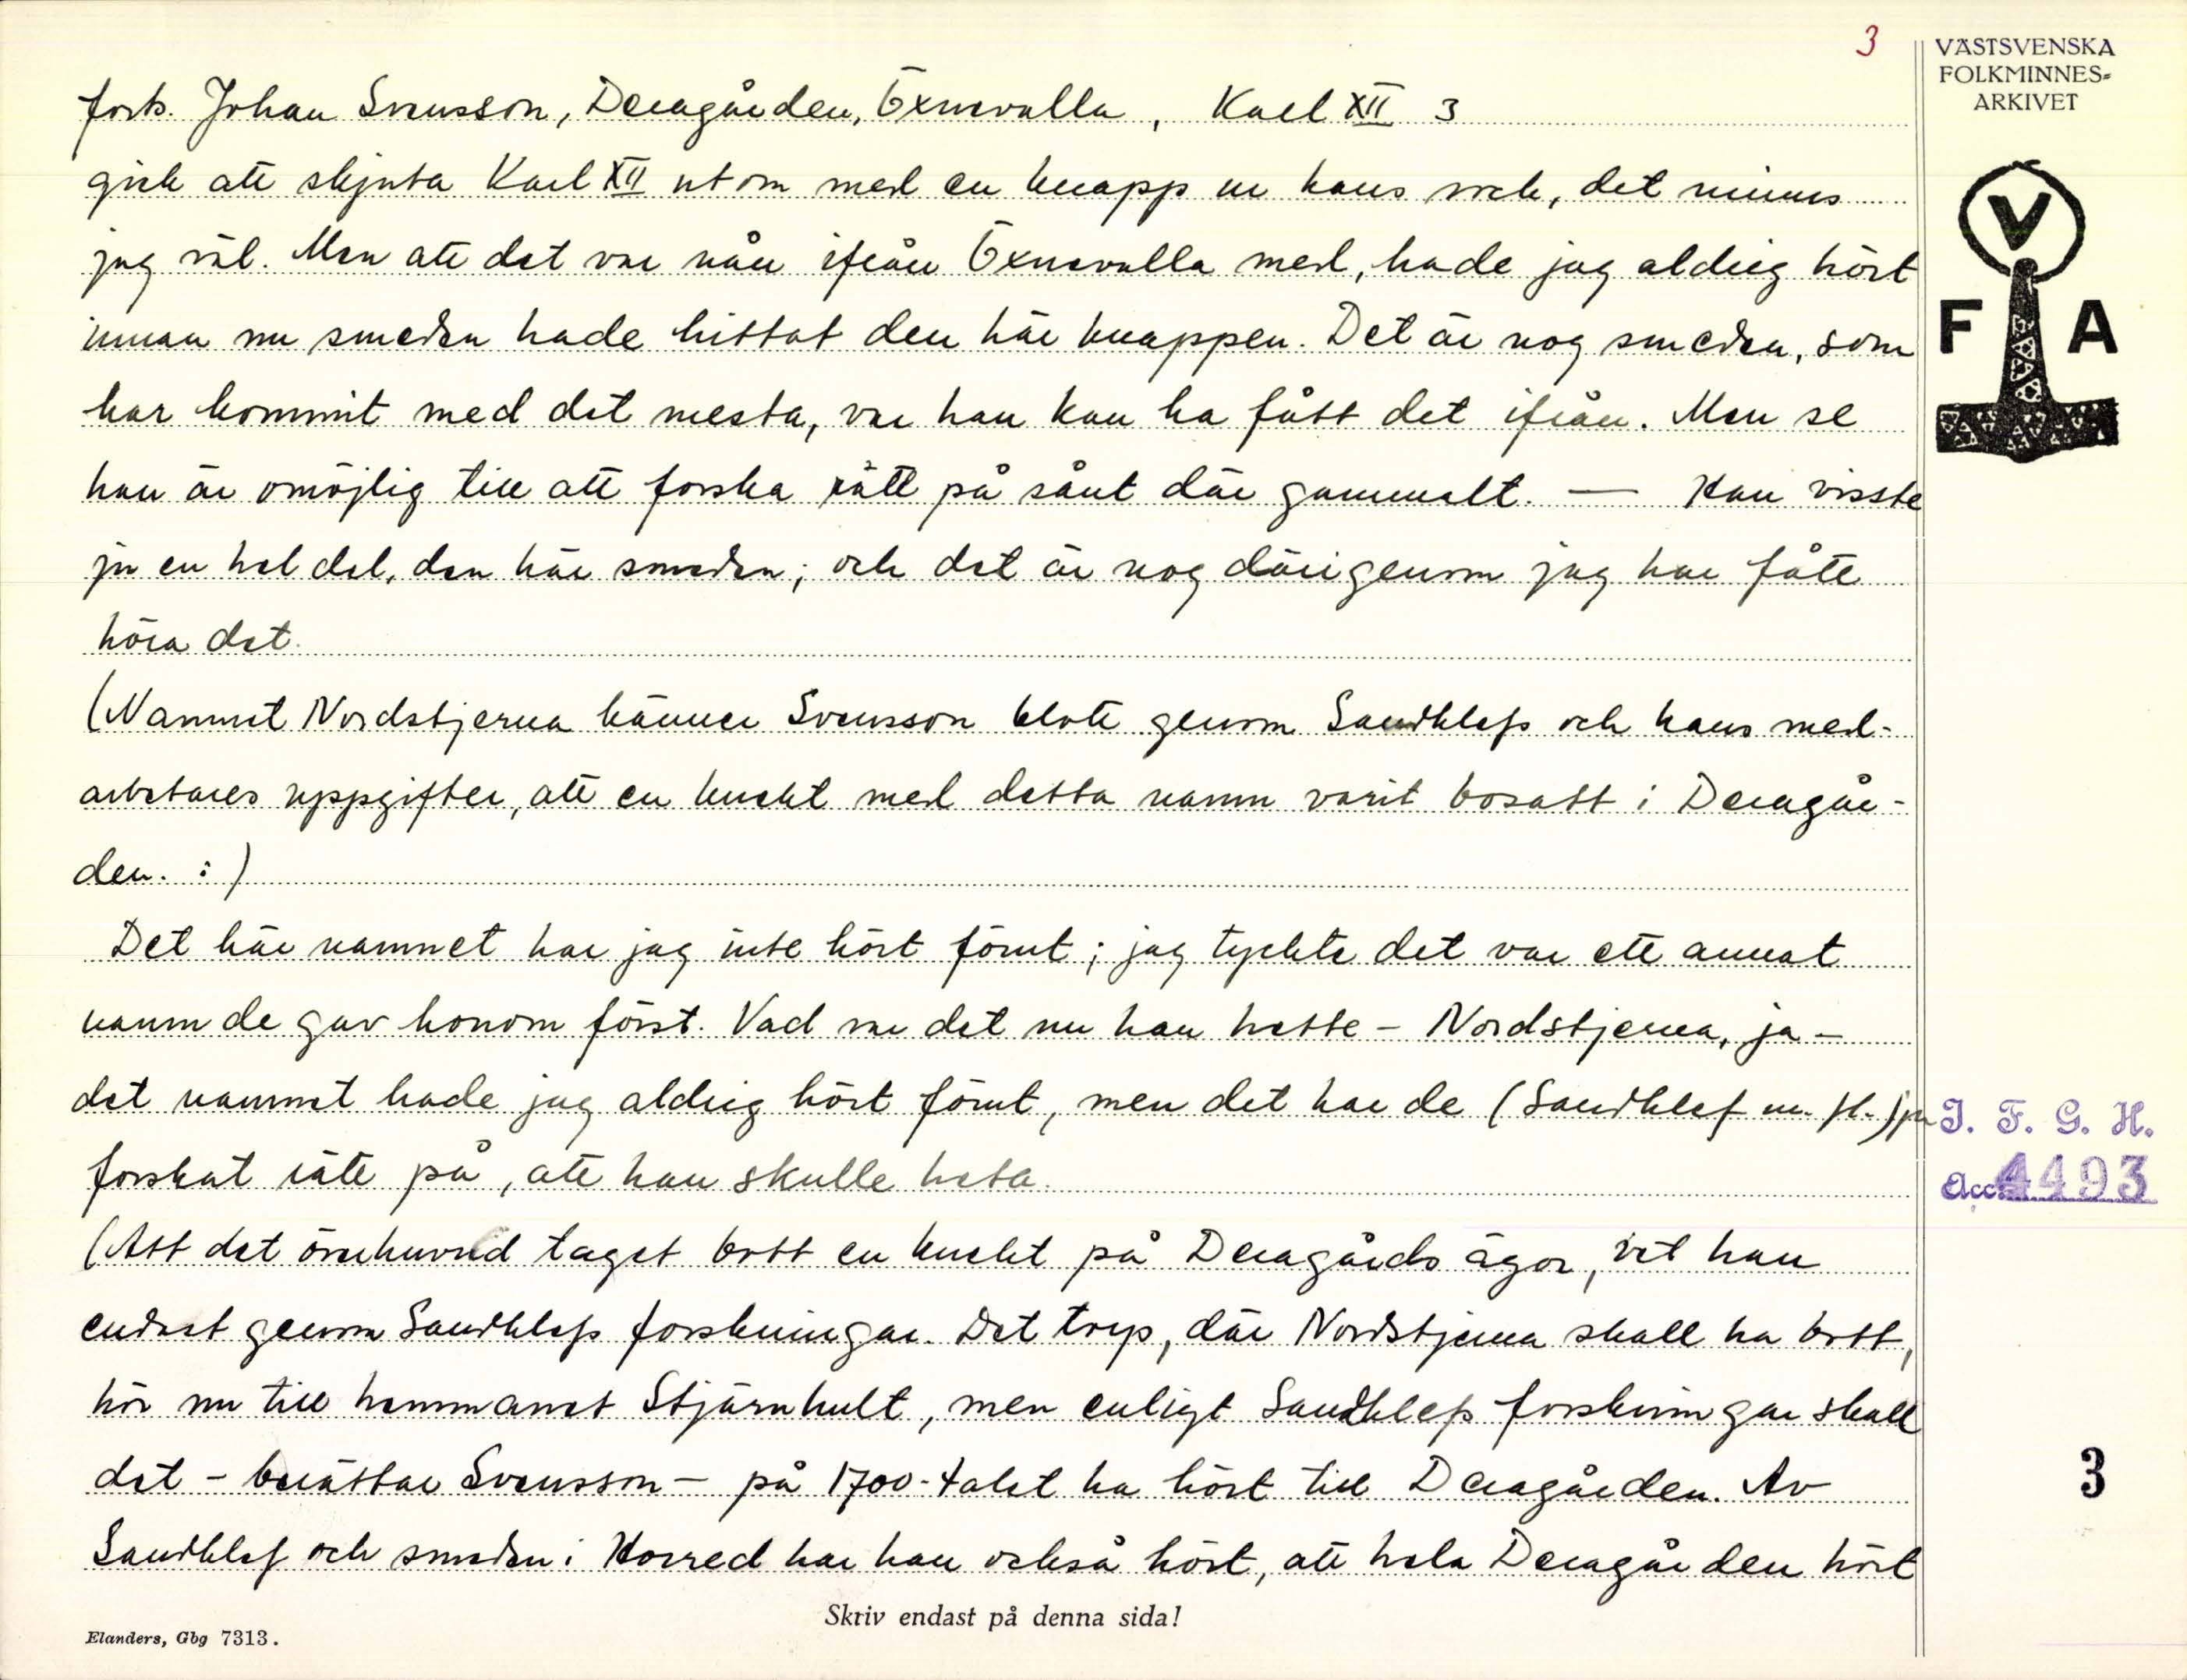 3
VÄSTSVENSKA
FOLKMINNES-
ARKIVET
forts. Johan Svensson, Deragården, Öxnevalla, Karl XII 3
gick att skjuta Karl XII utom med en knapp ur hans rock, det minns
jag väl. Men att det var nån ifrån Öxnevalla med, hade jag aldrig hört
innan nu smeden hade hittat den här knappen. Det är nog smeden, som
har kommit med det mesta, var han kan ha fått det ifrån. Men se
han är omöjlig till att forska rätt på sånt där gammalt. — Han visste
ju en hel del, den här smeden; och det är nog därigenom jag har fått
höra det.
(Namnet Nordstjerna känner Svensson blott genom Sandklefs och hans med-
arbetares uppgifter, att en knekt med detta namn varit bosatt i Deragår-
den. :)
Det här namnet har jag inte hört förut; jag tyckte det var ett annat
namn de gav honom först. Vad var det nu han hette - Nordstjerna, ja -
det namnet hade jag aldrig hört förut, men det har de (Sandklef m. fl.) ju
forskat rätt på, att han skulle heta.
(Att det överhuvud taget bott en knekt på Deragårds ägor, vet han
endast genom Sandklefs forskningar. Det torp, där Nordstjerna skall ha bott,
hör nu till hemmanet Stjärnhult, men enligt Sandklefs forskningar skall
det - berättar Svensson - på 1700-talet ha hört till Deragården. Av
Sandklef och smeden i Horred har han också hört, att hela Deragården hört
V
F A
I. F. G. H.
Acc. 4493
3
Skriv endast på denna sida!
Elanders, Gbg 7313.